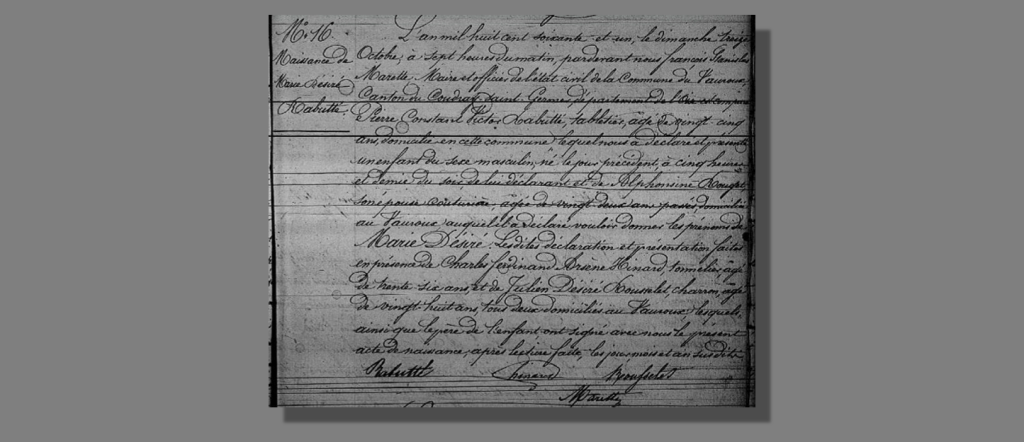 N.º 16.
Naissance de
Marie Désiré
Rabutté.
L'an mil huit cent soixante et un, le dimanche treize
Octobre, à sept heures du matin, par devant nous françois Stanislas
Marette, Maire et officier de l'état civil de la Commune du Vauroux,
Canton du Coudray Saint Germer département de l'Oise est comparu
Pierre Constant Victor Rabutté, tabletier, âgé de vingt cinq
ans, domicilié en cette commune lequel nous a déclaré et présenté
un enfant du sexe masculin, né le jour précédent, à cinq heures
et demie du soir de lui déclarant et de Alphonsine
son épouse couturière, âgée de vingt deux ans passés, domiciliés
au Vauroux auquel il a déclaré vouloir donner les prénoms de
Marie Désiré. Les dites déclaration et présentation faites
en présence de Charles ferdinand Arsène Hinard, tonnelier, âgé
de trente six ans et de Julien Désiré Rousselet, charron, âgé
de vingt huit ans, tous deux domiciliés au Vauroux, lesquels,
ainsi que le père de l'enfant ont signé avec nous le présent
acte de naissance, après lecture faite, les jour, mois et an susdits
Rabutté hinard Rousselet
Marette